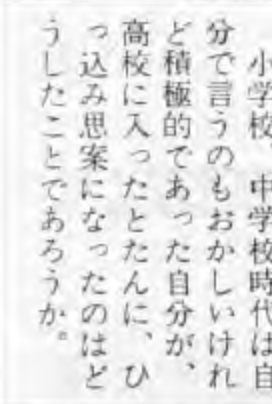 小学校、中学校時代は自
分で言うのもおかしいけれ
ど積極的であった自分が、
高校に入ったとたんに、ひ
っ込み思案になったのはど
うしたことであろうか。